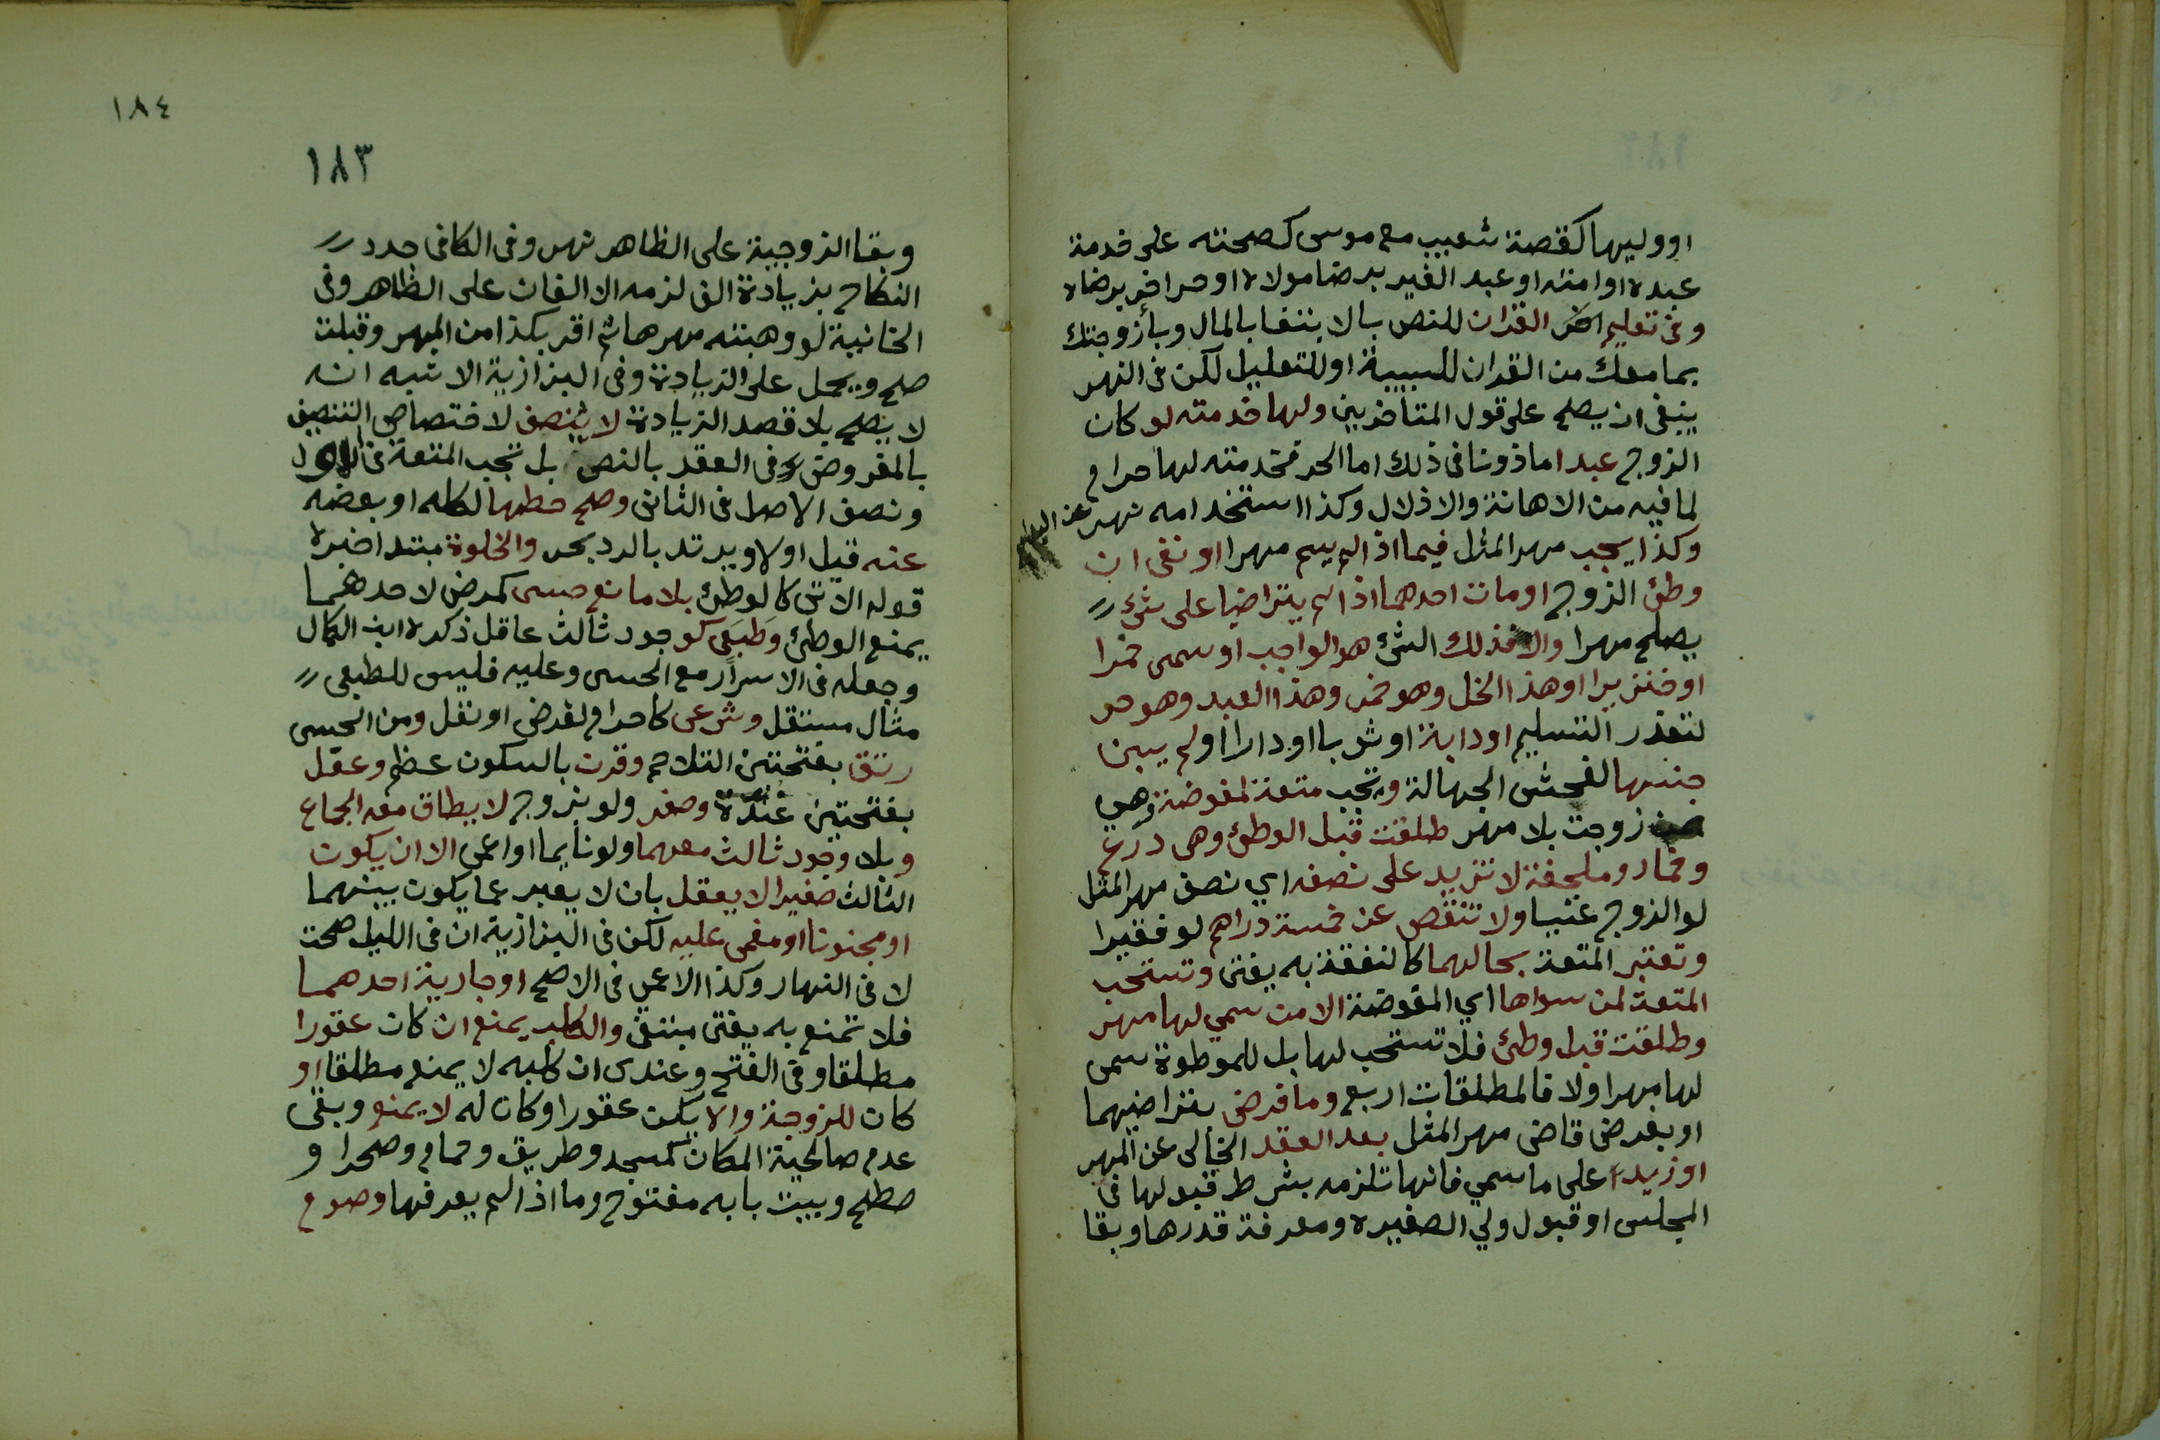 او وليها كقصة شعيب مع موسى كصحته على خدمة
عبده او امته او عبد الغير برضا مولاه او حر اخر برضاه
وفى تعليم القران للنص بالابتغا بالمال وبأزوجتك
بما معك من القران للسببية او للتعليل لكن فى النهر
ينبغى ان يصح على قول المتأخرين ولها خدمته لو كان
الزوج عبدا ماذونا فى ذلك اما الحر فخدمته لها حرام
لما فيه من الاهانة والاذلال وكذا استخدامه نهر عن البدايع
وكذا يجب مهر المثل فيما اذا لم يسم مهرا او نفى ان
وطئ الزوج او مات احدهما اذا لم يتراضيا على شئ
يصلح مهرا والا فذلك الشئ هو الواجب او سمى خمرا
او خنزيرا او هذا الخل وهو خمر وهذا العبد وهو حر
لتعذر التسليم او دابة او ثوبا او دارا او لم يبين
جنسها لفحش الجهالة وتجب متعة لمفوضة وهى
زوجت بلا مهر طلقت قبل الوطئ وهى درع
وخمار وملحفة لا تزيد على نصفه اي نصف مهر المثل
لو الزوج غنيا ولا تنقص عن خمسة دراهم لو فقيرا
وتعتبر المتعة بحالهما كالنفقة به يفتى وتستحب
المتعة لمن سواها اي المفوضة الا من سمي لها مهر
وطلقت قبل وطئ فلا تستحب لها بل للموطوة سمى
لها مهرا ولا فالمطلقات اربع وما فرض بتراضيهما
او بفرض قاضى مهر المثل بعد العقد الخالى عن المهر
او زيد على ما سمي فانها تلزمه بشرط قبولها فى
المجلس او قبول ولي الصغيره ومعرفة قدرها وبقا
١٨٤
١٨٣
وبقا الزوجية على الظاهر نهر وفى الكافى جدد
النكاح بزيادة الف لزمه الالفان على الظاهر وفى
الخانية لو وهبته مهرها ثم اقر بكذا من المهر وقبلت
صح ويحمل على الزيادة وفى البزازية الاشبه انه
لا يصح بلا قصد الزيادة لا ينصف لاختصاص التنصيف
بالمفروض فى العقد بالنص بل تجب المتعة فى الاول
ونصف الاصل فى الثانى وصح حطها لكله او بعضه
عنه قبل اولا ويرتد بالرد بحر والخلوة مبتدا خبره
قوله الاتى كالوطئ بلا مانع حسى كمرض لاحدهما
يمنع الوطئ وطبعى كوجود ثالث عاقل ذكره ابن الكمال
وجعله فى الاسرار مع الحسى وعليه فليس للطبعى
مثال مستقل وشرعى كاحرام لفرض او نفل ومن الحسى
رتق بفتحتين التلاحم وقرن بالسكون عظم وعفل
بفتحتين غدة وصغر ولو بزوج لا يطاق معه الجماع
وبلا وجود ثالث معهما ولو نايما او اعمى الا ان يكون
الثالث صغيرا لا يعقل بان لا يعبر عما يكون بينهما
او مجنونا او مغمى عليه لكن فى البزازية ان فى الليل صحت
لا فى النهار وكذا الاعمى فى الاصح او جارية احدهما
فلا تمنع به يفتى مبتغى والكلب يمنع ان كان عقورا
مطلقا وفى الفتح وعندى ان كلبه لا يمنع مطلقا او
كان للزوجة والا يكن عقورا وكان له لا يمنع وبقى
عدم صالحية المكان كمسجد وطريق وحمام وصحرا و
سطح وبيت بابه مفتوح وما اذا لم يعرفها وصوم